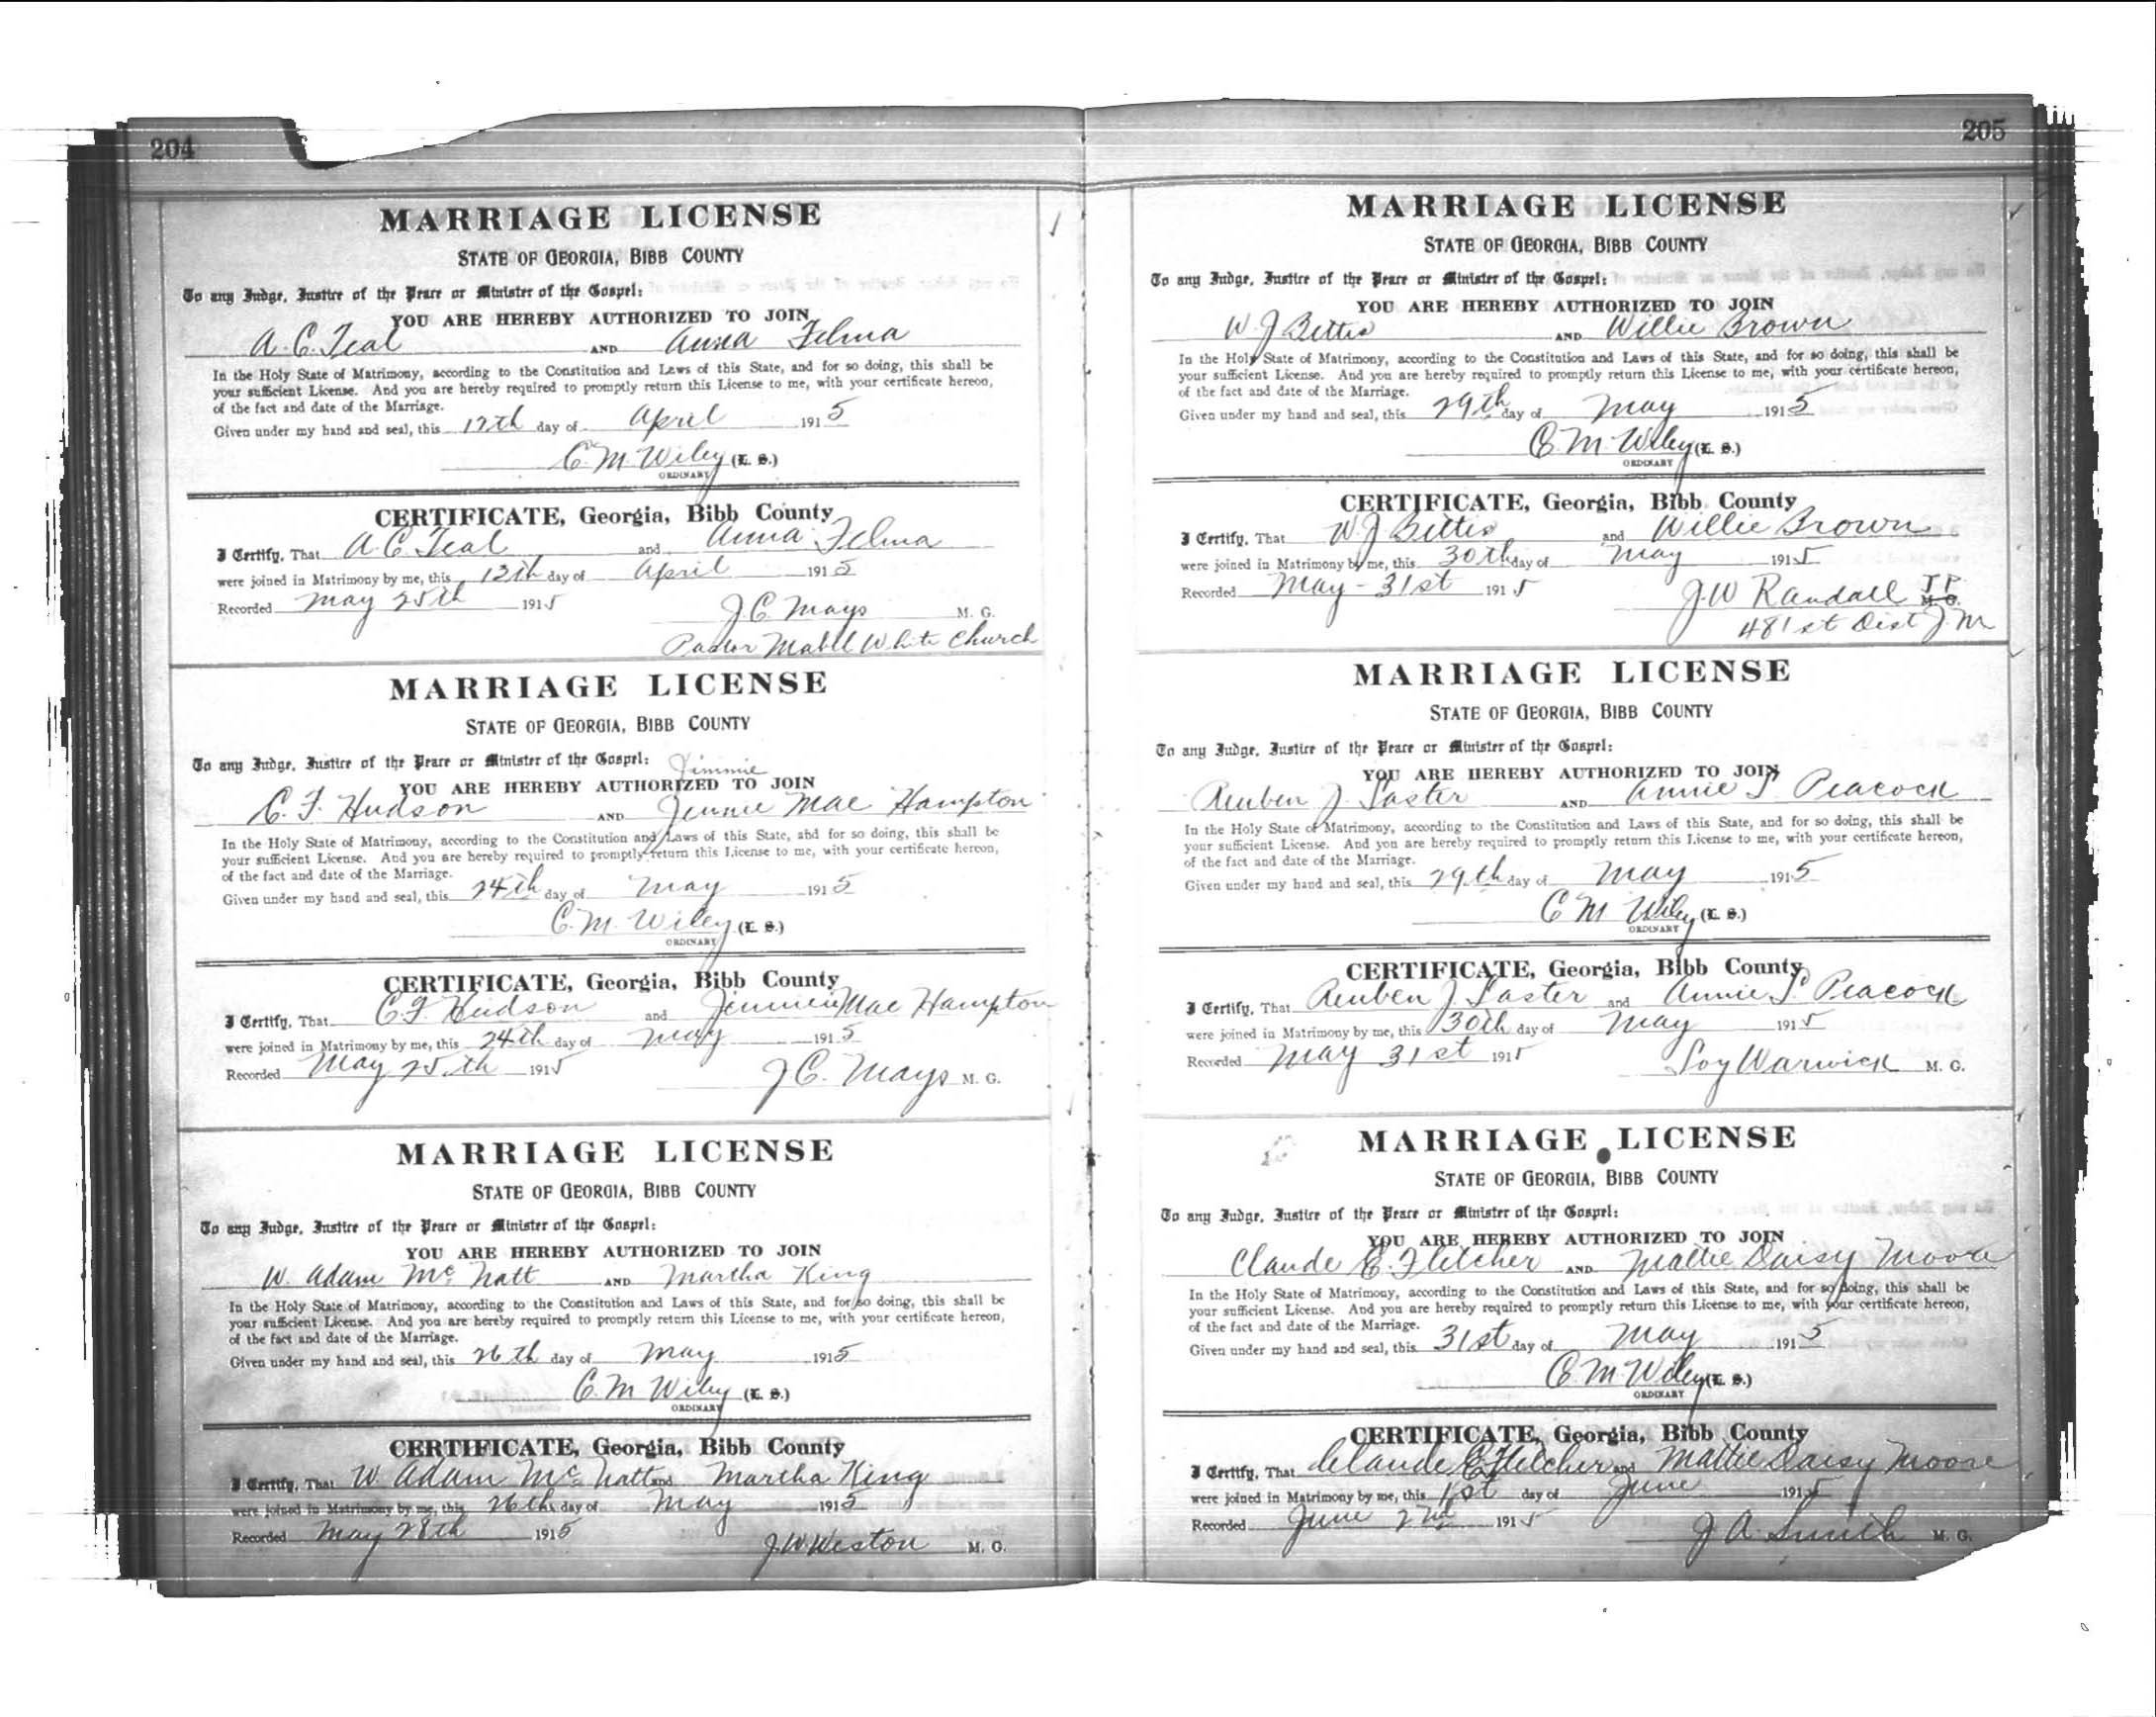 204
MARRIAGE LICENSE
STATE OF GEORGIA, BIBB COUNTY
To any Judge, Justice of the Peace or Minister of the Gospel:
YOU ARE HEREBY AUTHORIZED TO JOIN
A. C. Teal AND Anna Felma
In the Holy State of Matrimony, according to the Constitution and Laws of this State, and for so doing, this shall be
your sufficient License. And you are hereby required to promptly return this License to me, with your certificate hereon,
of the fact and date of the Marriage.
Given under my hand and seal, this 12th day of April 1915
C. M. Wiley (L. S.)
ORDINARY
CERTIFICATE, Georgia, Bibb County
I Certify, That A. C. Teal and Anna Felma
were joined in Matrimony by me, this 12th day of April 1915
Recorded May 25th 1915 J. C. Mays M. G.
Pastor Mabel White Church
MARRIAGE LICENSE
STATE OF GEORGIA, BIBB COUNTY
To any Judge, Justice of the Peace or Minister of the Gospel:
Jimmie
YOU ARE HEREBY AUTHORIZED TO JOIN
C. F. Hudson AND Jennie Mae Hampton
In the Holy State of Matrimony, according to the Constitution and Laws of this State, and for so doing, this shall be
your sufficient License. And you are hereby required to promptly return this License to me, with your certificate hereon,
of the fact and date of the Marriage.
Given under my hand and seal, this 24th day of May 1915
C. M. Wiley (L. S.)
ORDINARY
CERTIFICATE, Georgia, Bibb County
I Certify, That C. F. Hudson and Mae Hampton
were joined in Matrimony by me, this 24th day of May 1915
Recorded May 25th 1915 J. C. Mays M. G.
MARRIAGE LICENSE
STATE OF GEORGIA, BIBB COUNTY
To any Judge, Justice of the Peace or Minister of the Gospel:
YOU ARE HEREBY AUTHORIZED TO JOIN
W. Adam McNatt AND Martha King
In the Holy State of Matrimony, according to the Constitution and Laws of this State, and for so doing, this shall be
your sufficient License. And you are hereby required to promptly return this License to me, with your certificate hereon,
of the fact and date of the Marriage.
Given under my hand and seal, this 26th day of May 1915
C. M. Wiley (L. S.)
ORDINARY
CERTIFICATE, Georgia, Bibb County
I Certify, That W. Adam McNatt and Martha King
were joined in Matrimony by me, this 26th day of May 1915
Recorded May 28th 1915 J W Weston M. G.
205
MARRIAGE LICENSE
STATE OF GEORGIA, BIBB COUNTY
To any Judge, Justice of the Peace or Minister of the Gospel:
YOU ARE HEREBY AUTHORIZED TO JOIN
W. J Bettis AND Willie Brown
In the Holy State of Matrimony, according to the Constitution and Laws of this State, and for so doing, this shall be
your sufficient License. And you are hereby required to promptly return this License to me, with your certificate hereon,
of the fact and date of the Marriage.
Given under my hand and seal, this 29th day of May 1915
C. M. Wiley (L. S.)
ORDINARY
CERTIFICATE, Georgia, Bibb County
I Certify, That W. J Bettis and Willie Brown
were joined in Matrimony by me, this 30th day of May 1915
Recorded May - 31st 1915 J. W Randall J P M. G.
481st Dist
MARRIAGE LICENSE
STATE OF GEORGIA, BIBB COUNTY
To any Judge, Justice of the Peace or Minister of the Gospel:
YOU ARE HEREBY AUTHORIZED TO JOIN
Reuben J. Laster AND Annie Peacock
In the Holy State of Matrimony, according to the Constitution and Laws of this State, and for so doing, this shall be
your sufficient License. And you are hereby required to promptly return this License to me, with your certificate hereon,
of the fact and date of the Marriage.
Given under my hand and seal, this 29th day of May 1915
C M Wiley (L. S.)
ORDINARY
CERTIFICATE, Georgia, Bibb County
I Certify, That Reuben J. Laster and Annie Peacock
were joined in Matrimony by me, this 30th day of May 1915
Recorded May 31st 1915 Loy Warwick M. G.
MARRIAGE LICENSE
STATE OF GEORGIA, BIBB COUNTY
To any Judge, Justice of the Peace or Minister of the Gospel:
YOU ARE HEREBY AUTHORIZED TO JOIN
Claude E. Fletcher AND Mattie Daisy Moore
In the Holy State of Matrimony, according to the Constitution and Laws of this State, and for so doing, this shall be
your sufficient License. And you are hereby required to promptly return this License to me, with your certificate hereon,
of the fact and date of the Marriage.
Given under my hand and seal, this 31st day of May 1915
C. M. Wiley (L. S.)
ORDINARY
CERTIFICATE, Georgia, Bibb County
I Certify, That Claude E Fletcher and Mattie Daisy Moore
were joined in Matrimony by me, this 1st day of June 1915
Recorded June 2nd 1915 J A Smith M. G.